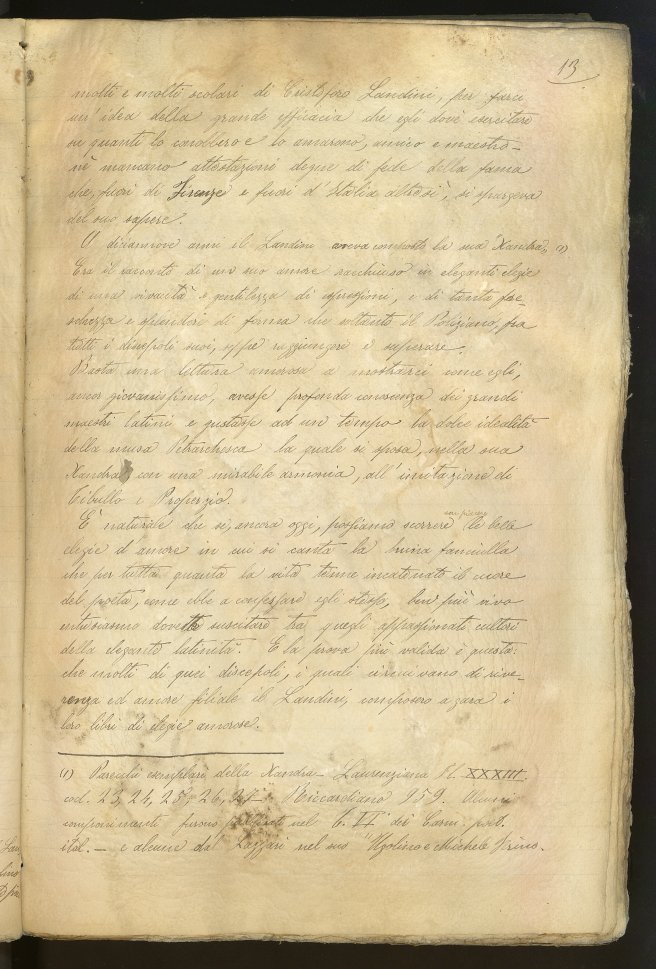 13
molti e molti scolari di Cristoforo Landini, per farci
un'idea della grande efficacia che egli dovè esercitare
su quanti lo conobbero e lo amarono, amico e maestro –
nè mancano attestazioni degne di fede della fama
che, fuori di Firenze e fuori d'Italia altresì, si spargeva
del suo sapere.
A diciannove anni il Landini aveva composto la sua Xandra, (1)
Era il racconto di un suo amore racchiuso in eleganti elegie
di una vivacità e gentilezza di espressioni, e di tanta fre-
schezza e splendori di forma che soltanto il Poliziano, fra
tutti i discepoli suoi, seppe raggiungere e superare.
Basta una lettura amorosa a mostrarci come egli,
ancor giovanissimo, avesse profonda conoscenza dei grandi
maestri latini e gustasse ad un tempo la dolce idealità
della musa Petrarchesca la quale si sposa, nella sua
Xandra, con una mirabile armonia, all'imitazione di
Tibullo e Properzio.
È naturale che se, ancora oggi, possiamo scorrere con piacere le belle
elegie d'amore in cui si canta la bruna fanciulla
che per tutta quanta la vita tenne incatenato il cuore
del poeta, come ebbe a confessare egli stesso, ben più vivo
entusiasmo dovette suscitare tra quegli appassionati cultori
della elegante latinità. E la prova più valida è questa:
che molti di quei discepoli, i quali circuivano di rive-
renza ed amore filiale il Landini, composero a gara i
loro libri di elegie amorose.
(1) Parecchi esemplari della Xandra – Laurenziana Pl. XXXIII.
cod. 23, 24, 25, 26, 27 – Riccardiano 959. Alcuni
componimenti furono pubblicati nel t. VI dei Carm. poet.
ital. – e alcune dal Lazzari nel suo "Ugolino e Michele Verino.